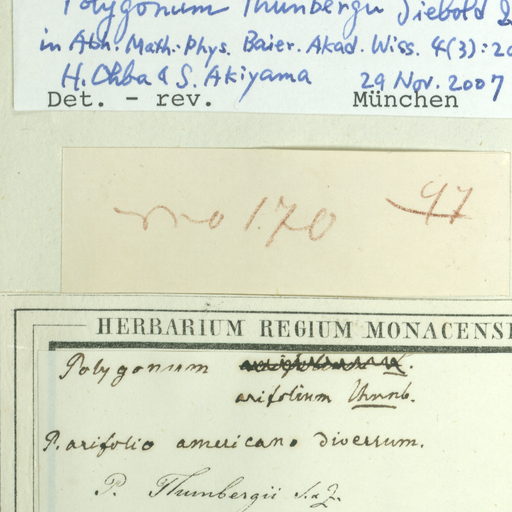 Polygonum Thunbergii Siebold &
in Abh. Math.-Phys. Baier. Akad. Wiss. 4(3): 20
H. Ohba & S. Akiyama 29 Nov. 2007
Det. - rev. München
no 170 97
HERBARIUM REGIUM MONACENS
Polygonum
arifolium Thunb.
P. arifolio americano diversum.
P. Thunbergii S. & Z.